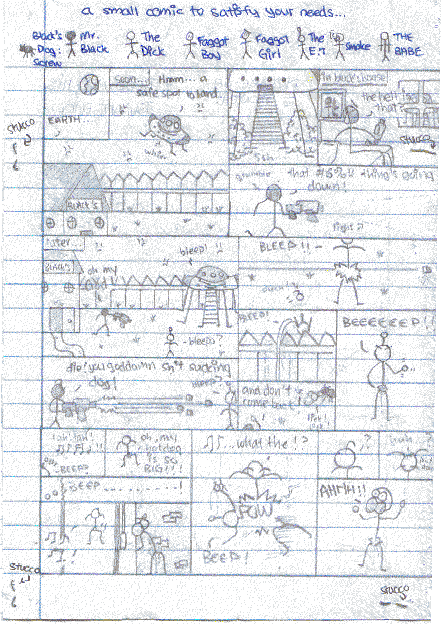 a small comic to satisfy your needs...
Black's Dog: Screw
Mr. Black
The Dick
Faggot Boy
Faggot Girl
The E.T
Smoke
THE BABE
EARTH...
soon...
Hmm... a safe spot to land
in black's house
the hell is that?
stucco
that #$%! thing's going down!
BLACK'S
later...
BLACK'S
oh my god!
bleep!
bleep?
BLEEP!!
ouch!
right?
BLEEP!
BEEEEEEP!!
die! you goddamn shit sucking dog!
bleep?
and don't come back!
BEEP?
oh, my hotdog is so BIG!!!
...what the!?
BEEP..........!
POW
BEEP!
AHHH!!
stucco
stucco